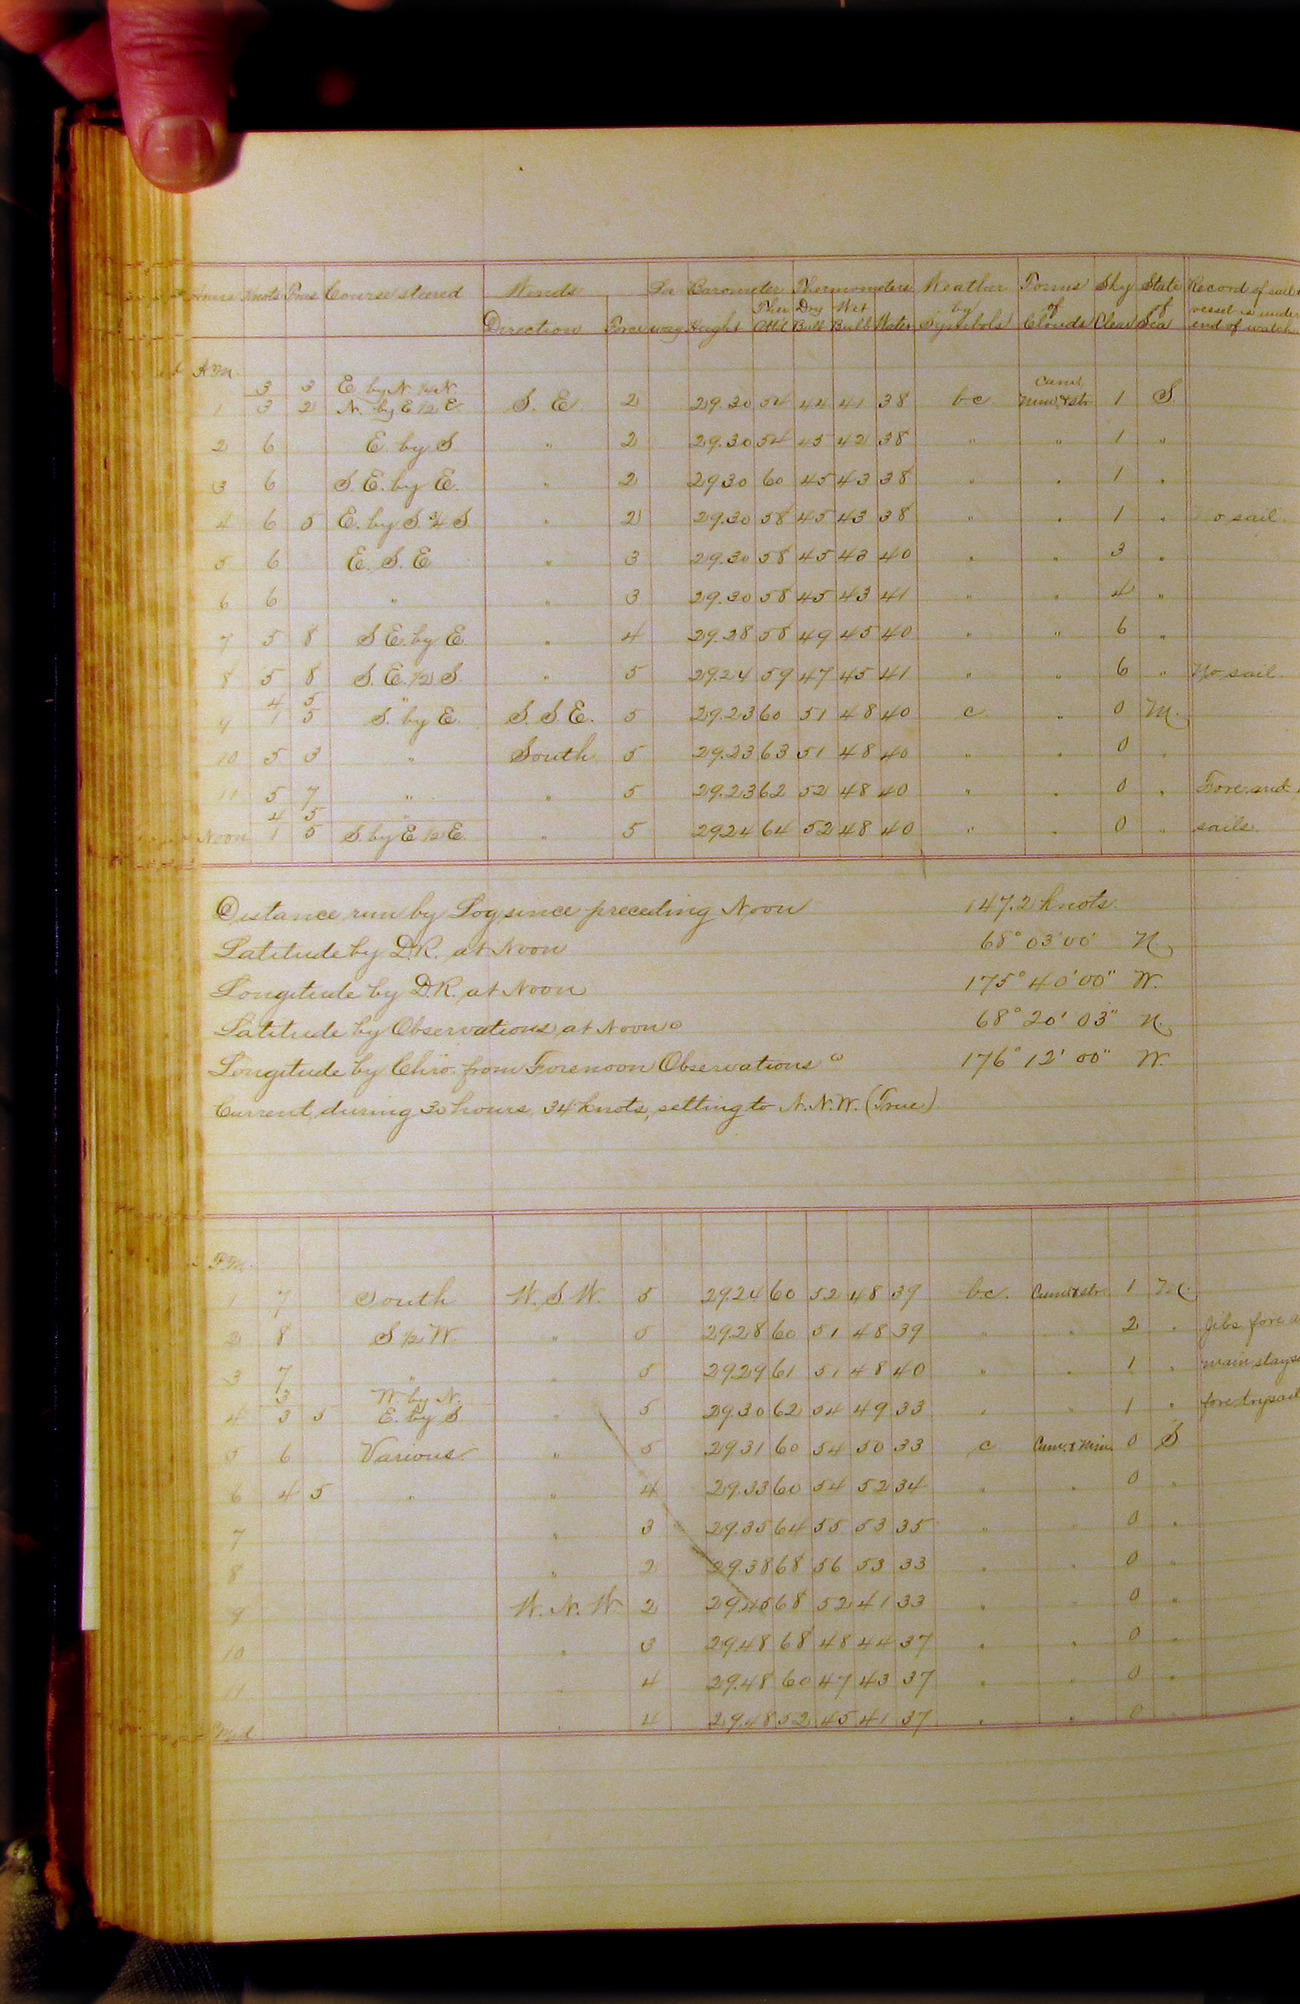 Hours Knots Fms Course steered Winds Lee Barometer Thermometers Weather Forms Sky State Record of sail
Direction Force way Height Ther Attd Dry Bulb Wet Bulb Water by Symbols of Clouds Clear of Sea vessel is under end of watch
A.M.
3 3 E. by N. 1/2 N. Cum.
1 3 2 N. by E 1/2 E S. E. 2 29.30 54 44 41 38 bc Nim. & str 1 S.
2 6 E. by S " 2 29.30 54 45 42 38 " " 1 "
3 6 S. E. by E. " 2 29.30 60 45 43 38 " " 1 "
4 6 5 E. by S 3/4 S " 2 29.30 58 45 43 38 " " 1 " o sail.
5 6 E. S. E " 3 29.30 58 45 43 40 " " 3 "
6 6 " " 3 29.30 58 45 43 41 " " 4 "
7 5 8 S E. by E. " 4 29.28 58 49 45 40 " " 6 "
8 5 8 S. E. 1/2 S. " 5 29.24 59 47 45 41 " " 6 " No sail.
4 5 "
9 1 5 S. by E. S. S. E. 5 29.23 60 51 48 40 c " 0 M.
10 5 3 " South 5 29.23 63 51 48 40 " " 0 "
11 5 7 " " 5 29.23 62 52 48 40 " " 0 " Fore and
4 5
Noon 1 5 S. by E 1/2 E. " 5 29.24 64 52 48 40 " " 0 " sails.
Distance run by Log since preceding Noon 147.2 knots.
Latitude by D.R. at Noon 68° 03' 00" N.
Longitude by D.R. at Noon 175° 40' 00" W.
Latitude by Observations at Noon 68° 20' 03" N.
Longitude by Chro. from Forenoon Observations 176° 12' 00" W.
Current, during 30 hours, 34 knots, setting to N.N.W. (True)
P.M.
1 7 South W. S. W. 5 29.24 60 52 48 39 bc. Cum. & str. 1 M.
2 8 S 1/2 W. " 5 29.28 60 51 48 39 " " 2 " Jibs, fore a
3 7 " " 5 29.29 61 51 48 40 " " 1 " main stays
3 W by N.
4 3 5 E. by S. " 5 29.30 62 54 49 33 " " 1 " fore trysail
5 6 Various " 5 29.31 60 54 50 33 c Cum. & Nim. 0 S
6 4 5 " " 4 29.33 60 54 52 34 " " 0 "
7 " 3 29.35 64 55 53 35 " " 0 "
8 " 2 29.38 68 56 53 33 " " 0 "
9 W. N. W. 2 29.45 68 52 41 33 " " 0 "
10 " 3 29.48 68 48 44 37 " " 0 "
11 " 4 29.48 60 47 43 37 " " 0 "
Mid. " 4 29.48 52 45 41 37 " " 0 "